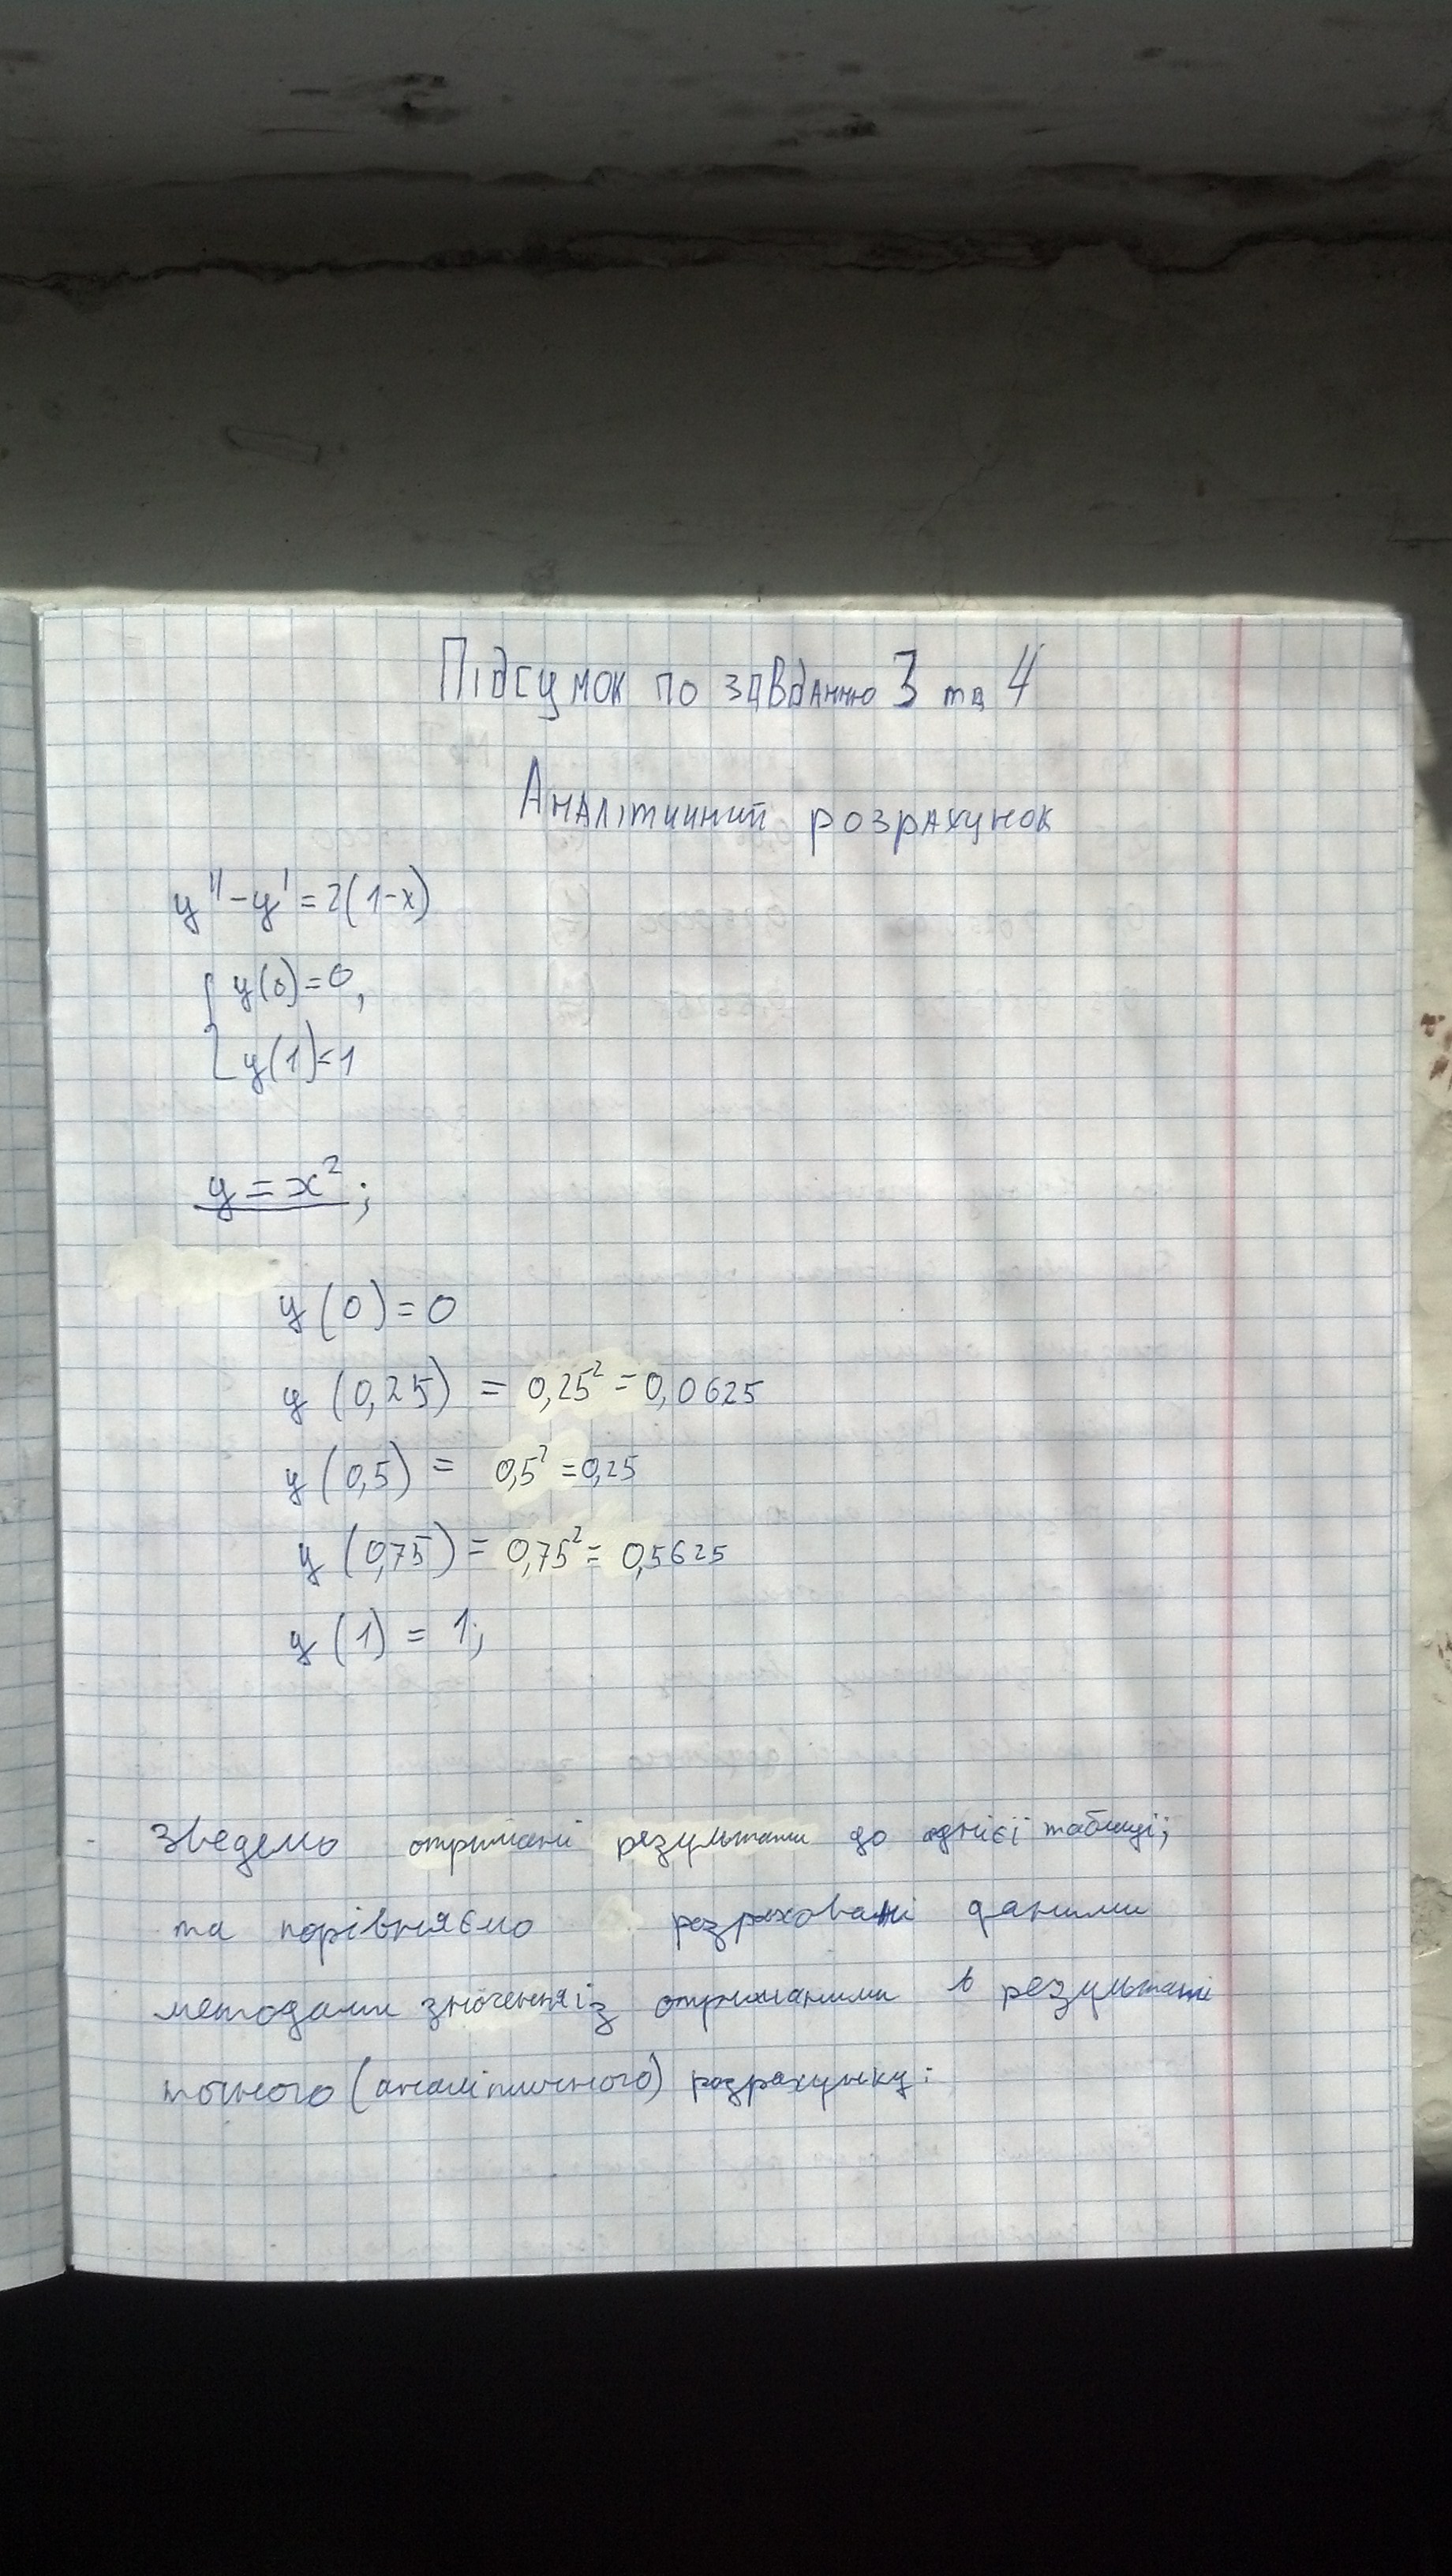 Підсумок по завданню 3 та 4
Аналітичний розрахунок
y''-y'=2(1-x)
{ y(0)=0,
y(1)=1
y=x²;
y(0)=0
y(0,25) = 0,25²=0,0625
y(0,5) = 0,5²=0,25
y(0,75)= 0,75²= 0,5625
y(1) = 1;
Зведемо отримані результати до однієї таблиці;
та порівняємо розраховані даними
методами значення із отриманими в результаті
точного (аналітичного) розрахунку: